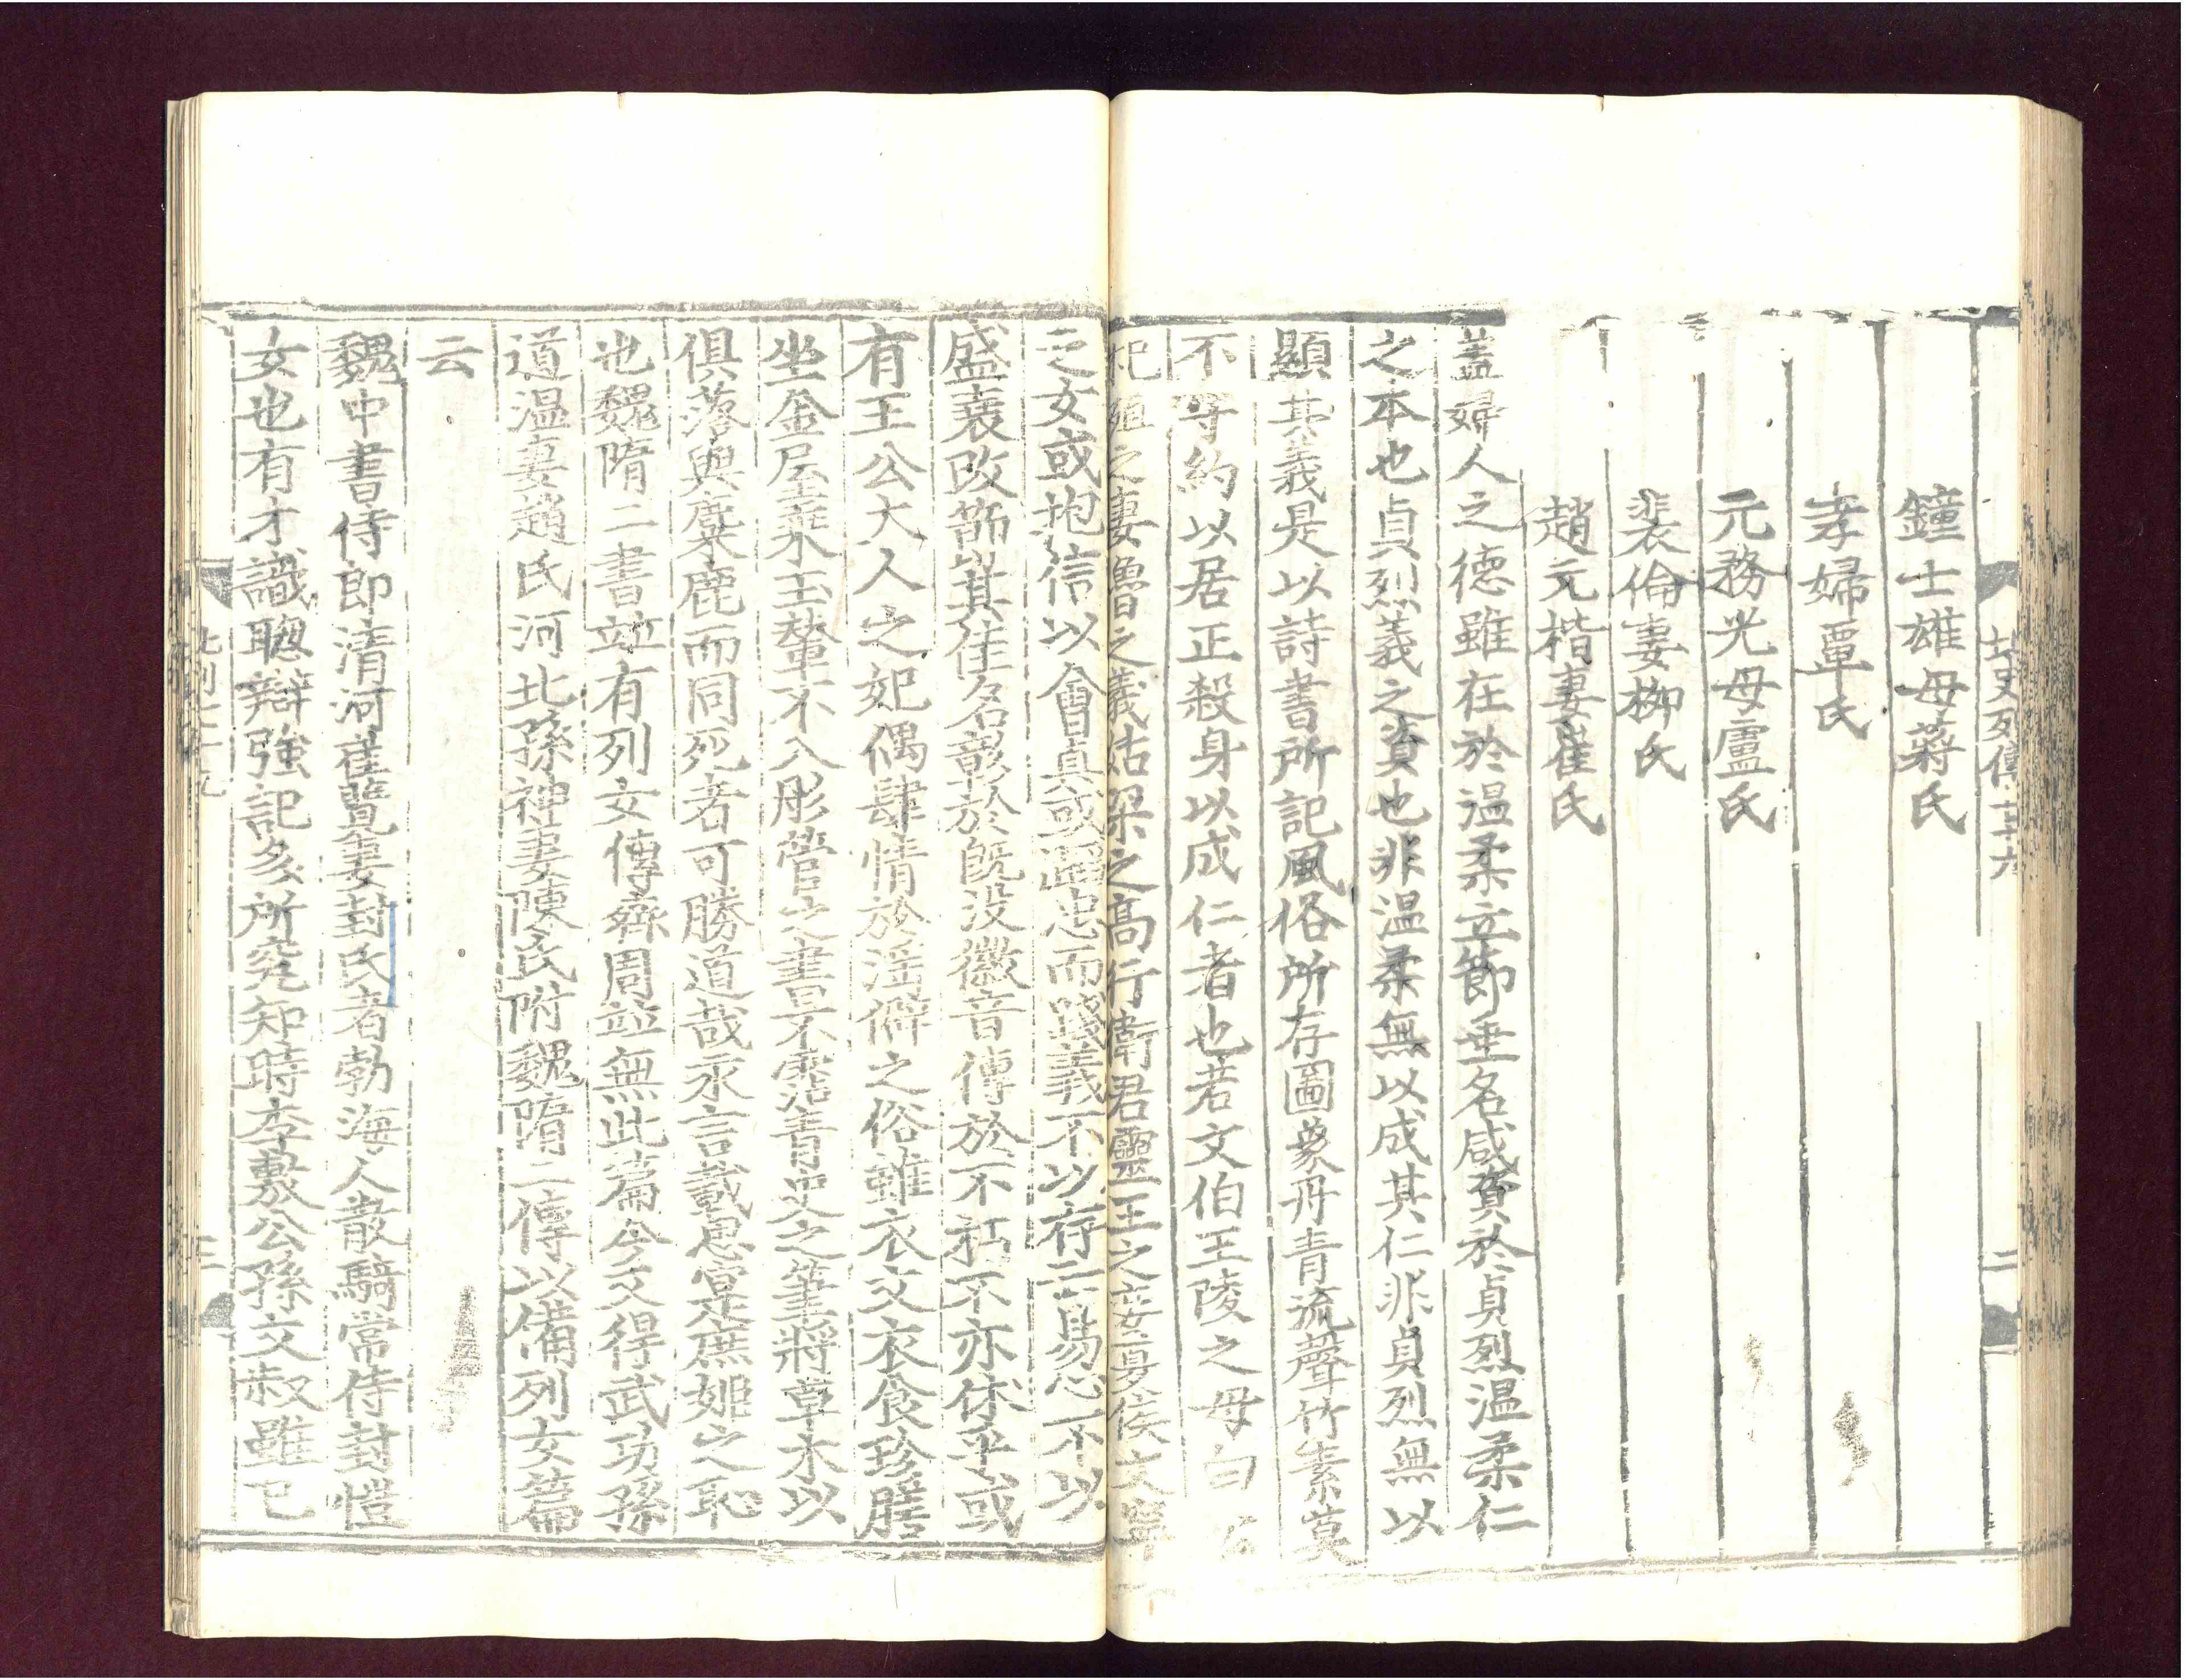 北史列傳七十九
二
鐘士雄母蔣氏
孝婦覃氏
元務光母盧氏
裴倫妻柳氏
趙元楷妻崔氏
蓋婦人之德雖在於溫柔立節垂名咸資於貞烈溫柔仁
之本也貞烈義之資也非溫柔無以成其仁非貞烈無以
顯其義是以詩書所記風俗所存圖象丹青流聲竹素莫
不守約以居正殺身以成仁者也若文伯王陵之母白公
杞殖之妻魯之義姑梁之高行衛君靈王之妾夏侯文寧
之女或抱信以會真或蹈忠而踐義不以存亡易心不以
盛衰改節其佳名彰於旣没徽音傳於不朽不亦休乎或
有王公大人之妃偶肆情於淫僻之俗雖衣文衣食珍膳
坐金屋乘玉輦不入彤管之書不霑青史之筆將草木以
俱落與麋鹿而同死者可勝道哉永言載思寔庶姬之恥
也魏隋二書竝有列女傳齊周竝無此篇今又得武功孫
道溫妻趙氏河北孫神妻陳氏附魏隋二傳以備列女篇
云
魏中書侍郎清河崔覽妻封氏者勃海人散騎常侍封愷
女也有才識聰辯強記多所究知時李敷公孫文叔雖已
三